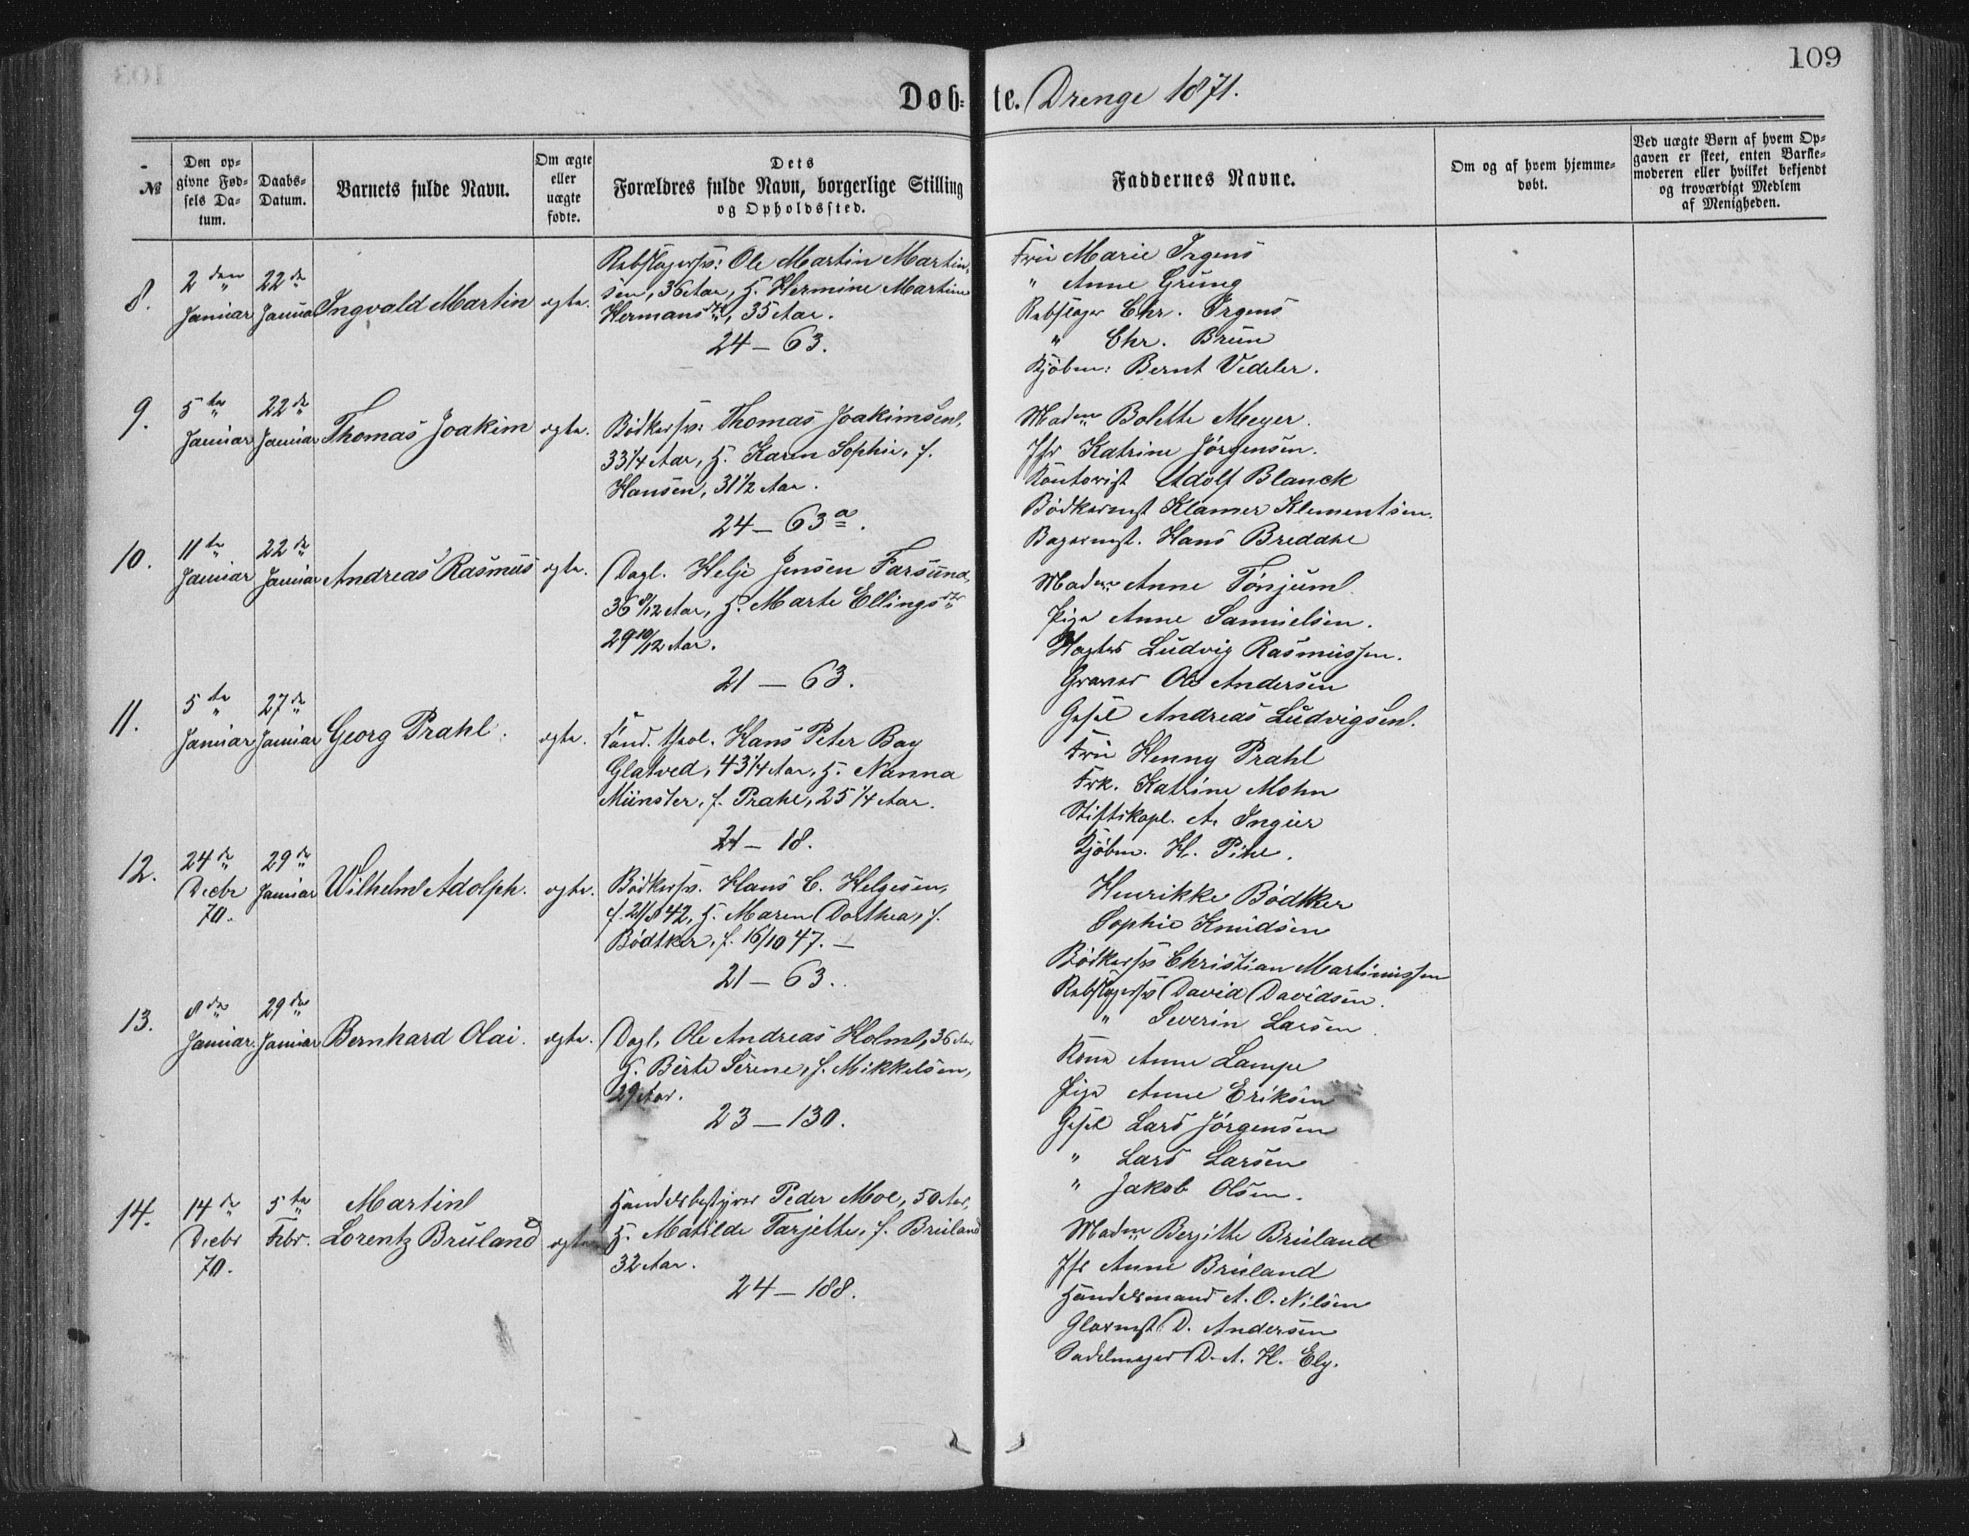 109
Døb=te. Drenge 1871.
№
Den op=
givne Fød=
sels Da=
tum.
Daabs=
Datum.
Barnets fulde Navn.
Om ægte
eller
uægte
fødte.
Dets
Forældres fulde Navn, borgerlige Stilling
og Opholdssted.
Faddernes Navne.
Om og af hvem hjemme=
døbt.
Ved uægte Børn af hvem Op=
gaven er skeet, enten Barne=
moderen eller hvilket bekjendt
og troværdigt Medlem
af Menigheden.
8.
2 den
Januar
22 de
Januar
Ingvald Martin
ægte.
Rebslagersv: Ole Martin Martin=
sen, 36 Aar, H. Hermine Martine
Hermansdr, 35 Aar.
24 – 63.
Fru Marie Irgens
" Anne Grung
Rebslager Chr. Irgens
" Chr. Brun
Kjøbm: Bernt Vedeler.
9.
5 te
Januar
22 de
Januar
Thomas Joakim
ægte.
Bødkersv: Thomas Joakimsen,
33 1/4 Aar, H. Karen Sophie, f.
Hansen, 31 1/2 Aar.
24 – 63 a.
Madm Bolette Meyer.
Jfr Katrine Jørgensen.
Kontorist Adolf Blanck
Bødkermst Klamer Klementsen.
Bagermst. Hans Breddke
10.
11 te
Januar
22 de
Januar
Andreas Rasmus
ægte.
Dagl. Helje Jensen Farsund,
36 8/12 Aar, H. Marte Ellingsdr
29 10/12 Aar.
21 – 63.
Madm Anne Tønjum
Pige Anne Samuelsen.
Vægter Ludvig Rasmussen.
Graver Ole Andersen
Gesel Andreas Ludvigsen.
11.
5 te
Januar
27 de
Januar
Georg Prahl.
ægte.
Cand. theol. Hans Peter Bay
Glatved, 43 1/4 Aar, H. Nanna
Münster, f. Prahl, 25 1/4 Aar.
21 – 18.
Fru Henny Prahl
Frk. Katrine Mohn
Stiftskapl. A. Ingier
Kjøbm. H. Pihl.
12.
24 de
Decbr
70.
29 de
Januar
Wilhelm Adolph.
ægte.
Bødkersv. Hans C. Helgesen,
f. 21/8 42, H. Maren Dorthea, f.
Bødtker, f. 16/10 47. –
21 – 63.
Henrikke Bødtker
Sophie Knudsen
Bødkersv Christian Martinussen
Rebslagersv David Davidsen.
" Severin Larsen.
13.
8 de
Januar.
29 de
Januar
Bernhard Olai.
ægte.
Dagl. Ole Andreas Holm, 36 Aar
H. Berte Serine, f. Mikkelsen,
29 Aar.
23 – 130.
Kone Anne Lampe
Pige Anne Eriksen
Gesel Lars Jørgensen
" Lars Larsen
" Jakob Olsen.
14.
14 de
Decbr
70.
5 te
Febr.
Martin
Lorentz Bruland
ægte
Handelsbestyrer Peder Moe, 50 Aar,
H. Matilde Tarjette, f. Bruland
32 Aar.
24 – 188.
Madm Bergitte Bruland
Jfr Anne Bruland
Handelsmand A. O. Nilsen
Glarmst D. Andersen
Sadelmager D. A. H. Ely.